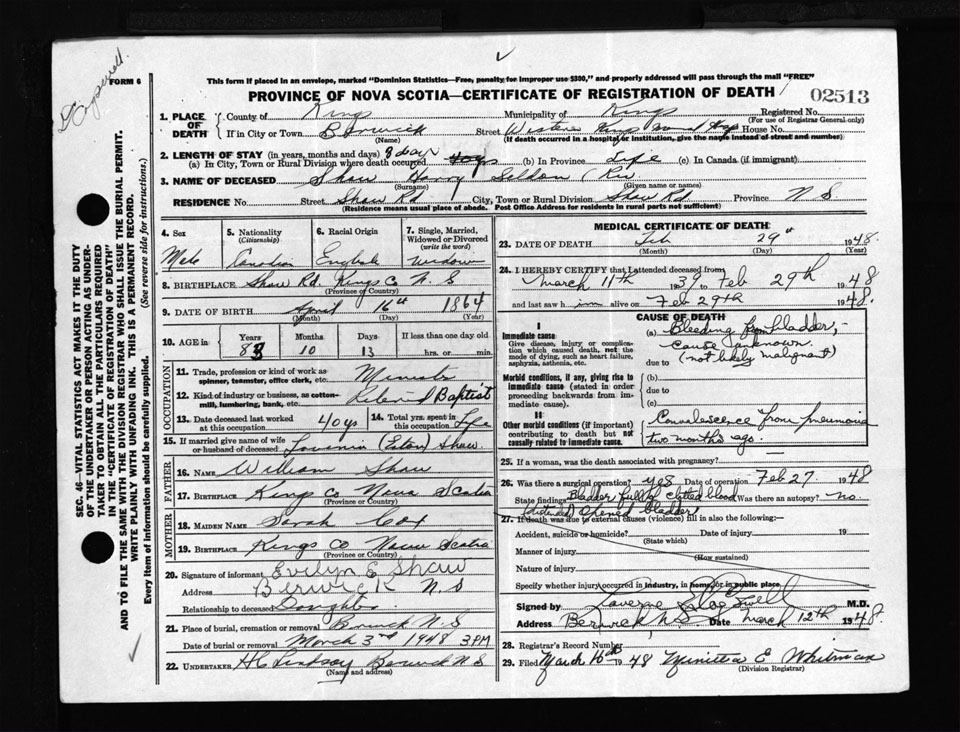 FORM 6
This form if placed in an envelope, marked "Dominion Statistics—Free, penalty for improper use $300," and properly addressed will pass through the mail "FREE"
PROVINCE OF NOVA SCOTIA—CERTIFICATE OF REGISTRATION OF DEATH
02513
1. PLACE OF DEATH County of Kings Municipality of Kings Registered No.
(For use of Registrar General only)
If in City or Town Berwick Street Western Kings Hosp House No.
(Name) (If death occurred in a hospital or institution, give the name instead of street and number)
2. LENGTH OF STAY (in years, months and days) 8 days
(a) In City, Town or Rural Division where death occurred (b) In Province Life (c) In Canada (if immigrant)
3. NAME OF DECEASED Shaw Harry Seldon (Rev
(Surname) (Given name or names)
RESIDENCE No. Street Shaw Rd City, Town or Rural Division Shaw Rd. Province N S
(Residence means usual place of abode. Post Office Address for residents in rural parts not sufficient)
4. Sex Male
5. Nationality (Citizenship) Canadian
6. Racial Origin English
7. Single, Married, Widowed or Divorced (write the word) Widow
8. BIRTHPLACE Shaw Rd. Kings Co N. S
(Province or Country)
9. DATE OF BIRTH April 16th 1864
(Month) (Day) (Year)
10. AGE in Years 83 Months 10 Days 13 If less than one day old hrs. or min.
OCCUPATION
11. Trade, profession or kind of work as spinner, teamster, office clerk, etc. Minister
12. Kind of industry or business, as cotton-mill, lumbering, bank, etc. Baptist
13. Date deceased last worked at this occupation 40 ys
14. Total yrs. spent in this occupation Life
15. If married give name of wife or husband of deceased (Eaton) Shaw.
FATHER
16. NAME William Shaw
17. BIRTHPLACE Kings Co Nova Scotia
(Province or Country)
MOTHER
18. MAIDEN NAME Sarah Cox
19. BIRTHPLACE Kings Co Nova Scotia
(Province or Country)
20. Signature of informant Evelyn E Shaw
Address Berwick N. S
Relationship to deceased Daughter
21. Place of burial, cremation or removal Berwick N. S
Date of burial or removal March 3rd 1948 3 PM
22. UNDERTAKER H C Lindsay Berwick N S
(Name and address)
MEDICAL CERTIFICATE OF DEATH
23. DATE OF DEATH Feb 29th 1948.
(Month) (Day) (Year)
24. I HEREBY CERTIFY that I attended deceased from
March 11th 1939 to Feb 29th 1948
and last saw him alive on Feb 29th 1948.
CAUSE OF DEATH
I
Immediate cause
Give disease, injury or complication which caused death, not the mode of dying, such as heart failure, asphyxia, asthenia, etc.
(a) Bleeding from bladder,
cause unknown.
due to (not likely malignant)
Morbid conditions, if any, giving rise to immediate cause (stated in order proceeding backwards from immediate cause).
(b)
due to
(c)
II
Other morbid conditions (if important) contributing to death but not causally related to immediate cause.
Convalescence from pneumonia
two months ago.
25. If a woman, was the death associated with pregnancy? —
26. Was there a surgical operation? yes Date of operation Feb 27 1948
State findings Bladder full of clotted blood Was there an autopsy? no.
Opened bladder
27. If death was due to external causes (violence) fill in also the following:—
Accident, suicide or homicide? Date of injury 19
(State which)
Manner of injury
(How sustained)
Nature of injury
Specify whether injury occurred in industry, in home, or in public place
Signed by M.D.
Address Berwick N.S. Date March 12th 1948.
28. Registrar's Record Number
29. Filed March 16th 1948 E Whitman
(Division Registrar)
SEC. 46—VITAL STATISTICS ACT MAKES IT THE DUTY OF THE UNDERTAKER OR PERSON ACTING AS UNDERTAKER TO OBTAIN ALL THE PARTICULARS REQUIRED IN THE "CERTIFICATE OF REGISTRATION OF DEATH" AND TO FILE THE SAME WITH THE DIVISION REGISTRAR WHO SHALL ISSUE THE BURIAL PERMIT.
WRITE PLAINLY WITH UNFADING INK. THIS IS A PERMANENT RECORD.
Every item of information should be carefully supplied. (See reverse side for instructions.)